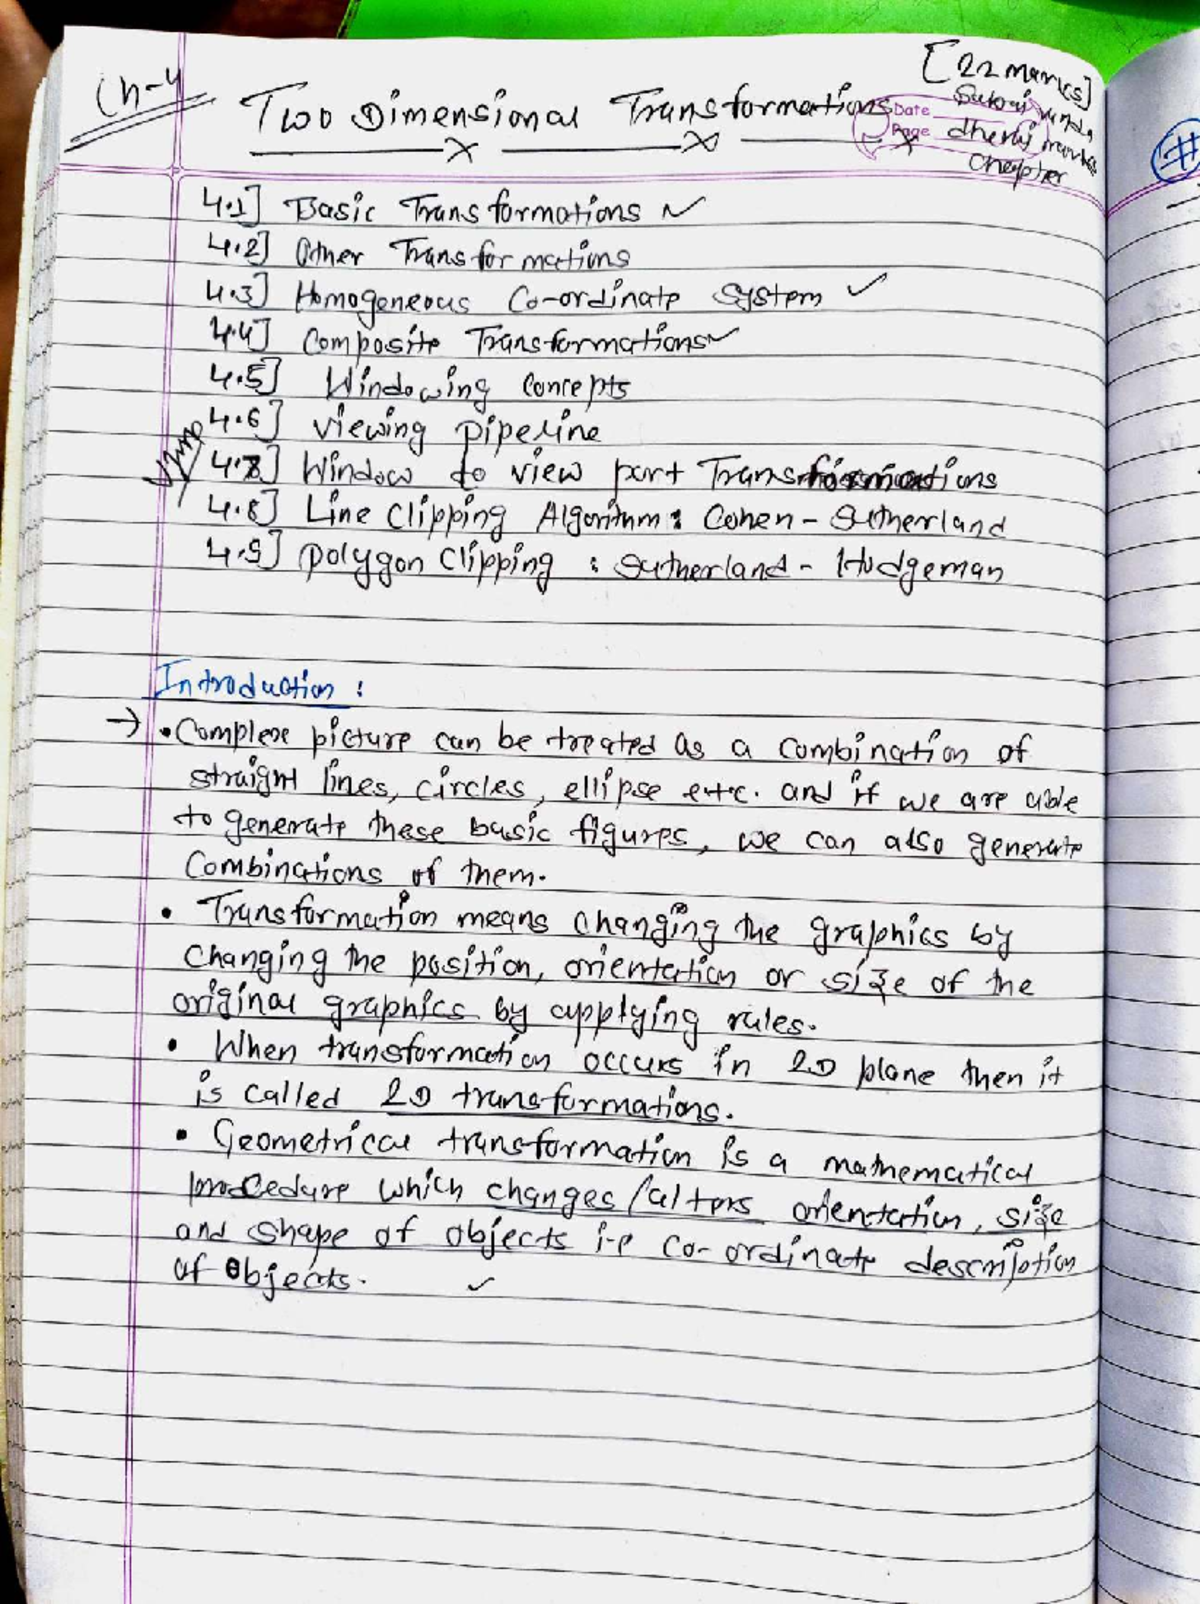 Ch-4
Two Dimensional Transformations
[22 marks]
Date
Page
Sabai vanda
dherai marks
Chapter
4.1] Basic Transformations
4.2] Other Transformations
4.3] Homogeneous Co-ordinate System
4.4] Composite Transformations
4.5] Windowing Concepts
4.6] Viewing pipeline
VImp
4.7] Window to view port Transformations
4.8] Line Clipping Algorithm: Cohen - Sutherland
4.9] Polygon Clipping : Sutherland - Hodgeman
Introduction :
→ • Complex picture can be treated as a combination of
straight lines, circles, ellipse etc. and if we are able
to generate these basic figures, we can also generate
Combinations of them.
• Transformation means changing the graphics by
changing the position, orientation or size of the
original graphics by applying rules.
• When transformation occurs in 2D plane then it
is called 2D transformations.
• Geometrical transformation is a mathematical
procedure which changes/alters orientation, size
and shape of objects i.e co-ordinate description
of objects.
#